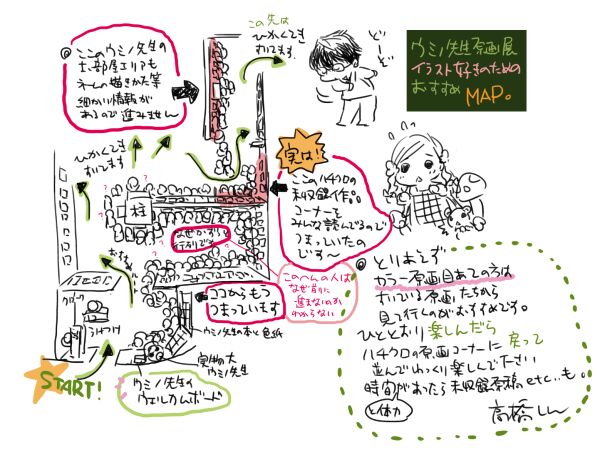 ウミノ先生原画展
イラスト好きのための
おすすめ
MAP。
この先は
ひかくてき
すいてます。
どーぞ
ここのウミノ先生の
お部屋エリアも
ネームの描きかた等
細かい情報が
あるので進みません
ひかくてき
すいてます
実は!!
ここハチクロの
未収録作。
コーナーを
みんな読んでるので
つまっていたの
です〜
柱
なぜかずらりと
行列です
このへんの人は
なぜ前に
進まないのか
わからない
ココからもう
つまっています
ウミノ先生の本と色紙
実物大
ウミノ先生
うけつけ
START!
ウミノ先生の
ウェルカムボード
とりあえず
カラー原画目あての方は
すいている原画たちから
見て行くのがおすすめです。
ひととおり楽しんだら
ハチクロの原画コーナーに戻って
並んでじっくり楽しんで下さい
時間があったら未収録原稿etc..も。
と体力
高橋しん